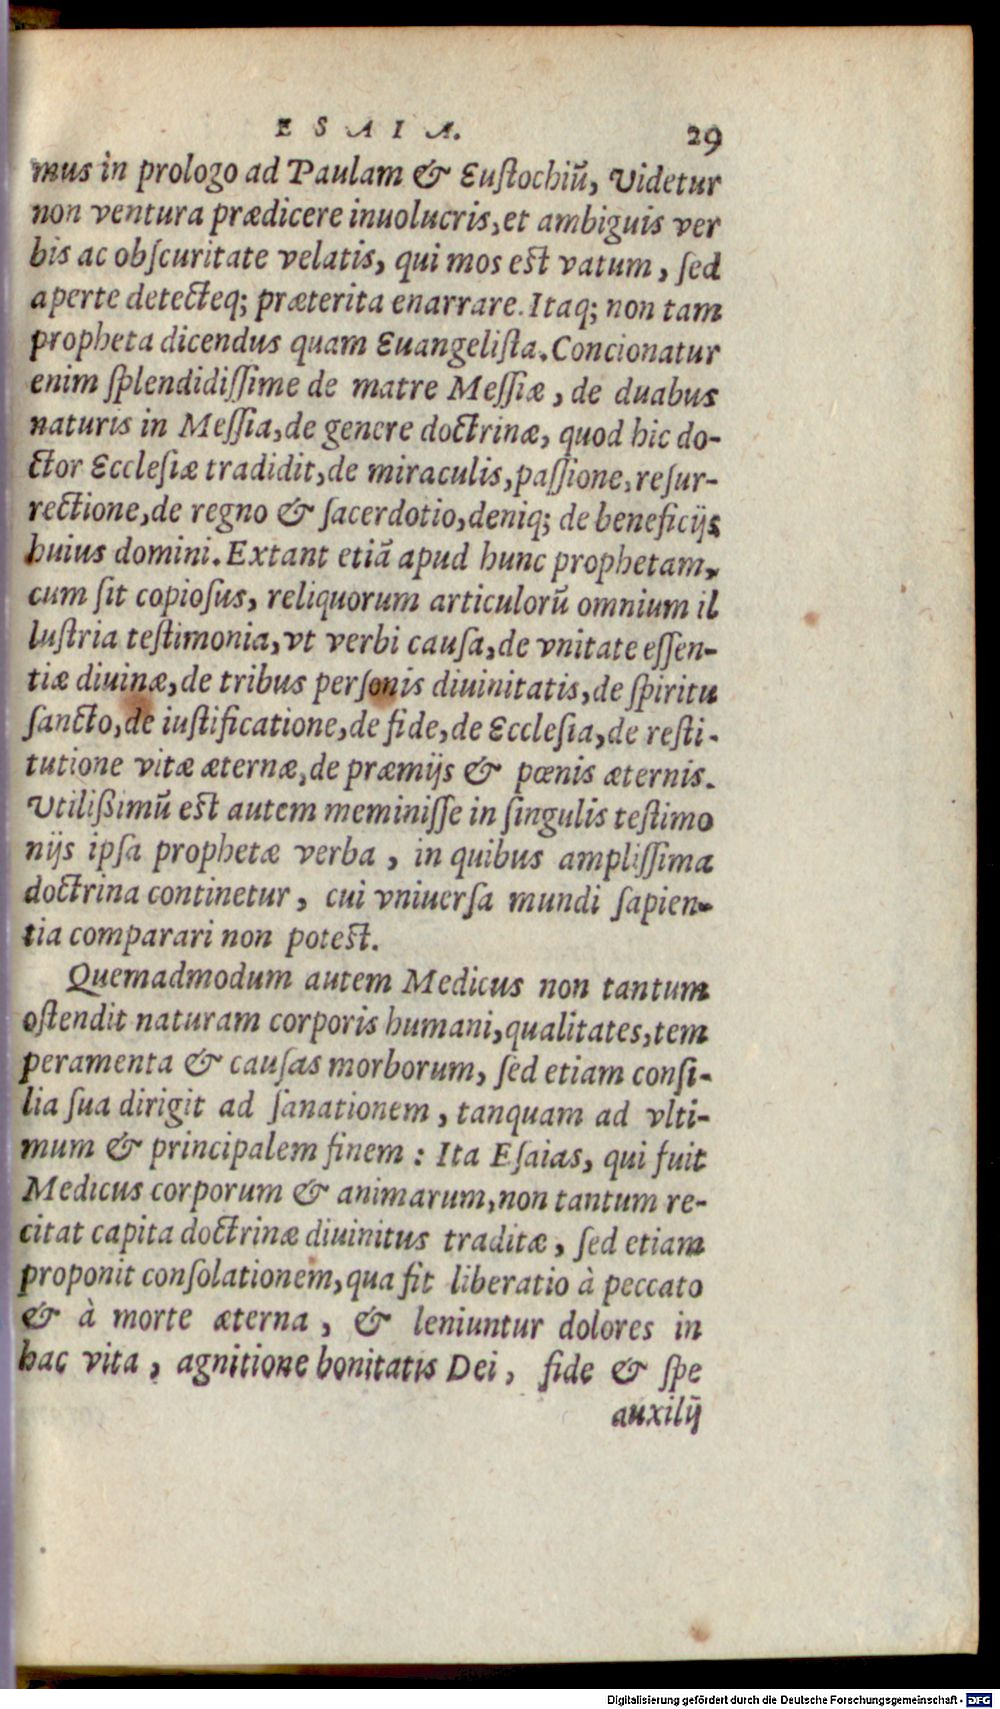 E S A I A. 29
mus in prologo ad Paulam & Euſtochiū, Videtur
non ventura prædicere inuolucris, et ambiguis ver
bis ac obſcuritate velatis, qui mos eſt vatum, ſed
aperte detecteq; præterita enarrare. Itaq; non tam
propheta dicendus quam Euangeliſta. Concionatur
enim ſplendidiſſime de matre Meſſiæ, de duabus
naturis in Meſſia, de genere doctrinæ, quod hic do-
ctor Eccleſiæ tradidit, de miraculis, paſſione, reſur-
rectione, de regno & ſacerdotio, deniq; de beneficijs
huius domini. Extant etiā apud hunc prophetam,
cum ſit copioſus, reliquorum articulorū omnium il
luſtria teſtimonia, vt verbi cauſa, de vnitate eſſen-
tiæ diuinæ, de tribus perſonis diuinitatis, de ſpiritu
ſancto, de iuſtificatione, de fide, de Eccleſia, de reſti-
tutione vitæ æternæ, de præmijs & pœnis æternis.
Vtilißimū eſt autem meminiſſe in ſingulis teſtimo
nijs ipſa prophetæ verba, in quibus ampliſſima
doctrina continetur, cui vniuerſa mundi ſapien-
tia comparari non poteſt.
Quemadmodum autem Medicus non tantum
oſtendit naturam corporis humani, qualitates, tem
peramenta & cauſas morborum, ſed etiam conſi-
lia ſua dirigit ad ſanationem, tanquam ad vlti-
mum & principalem finem: Ita Eſaias, qui fuit
Medicus corporum & animarum, non tantum re-
citat capita doctrinæ diuinitus traditæ, ſed etiam
proponit conſolationem, qua fit liberatio à peccato
& à morte æterna, & leniuntur dolores in
hac vita, agnitione bonitatis Dei, fide & ſpe
auxilij
Digitalisierung gefördert durch die Deutsche Forschungsgemeinschaft - DFG